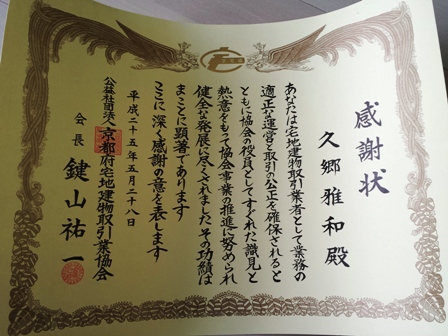 感謝状
久郷雅和殿
あなたは宅地建物取引業者として業務の
適正な運営と取引の公正を確保されると
ともに協会の役員としてすぐれた識見と
熱意をもって協会事業の推進に努められ
健全な発展に尽くされましたその功績は
まことに顕著であります
ここに深く感謝の意を表します
平成二十五年五月二十八日
公益社団法人京都府宅地建物取引業協会
会長 鍵山祐一